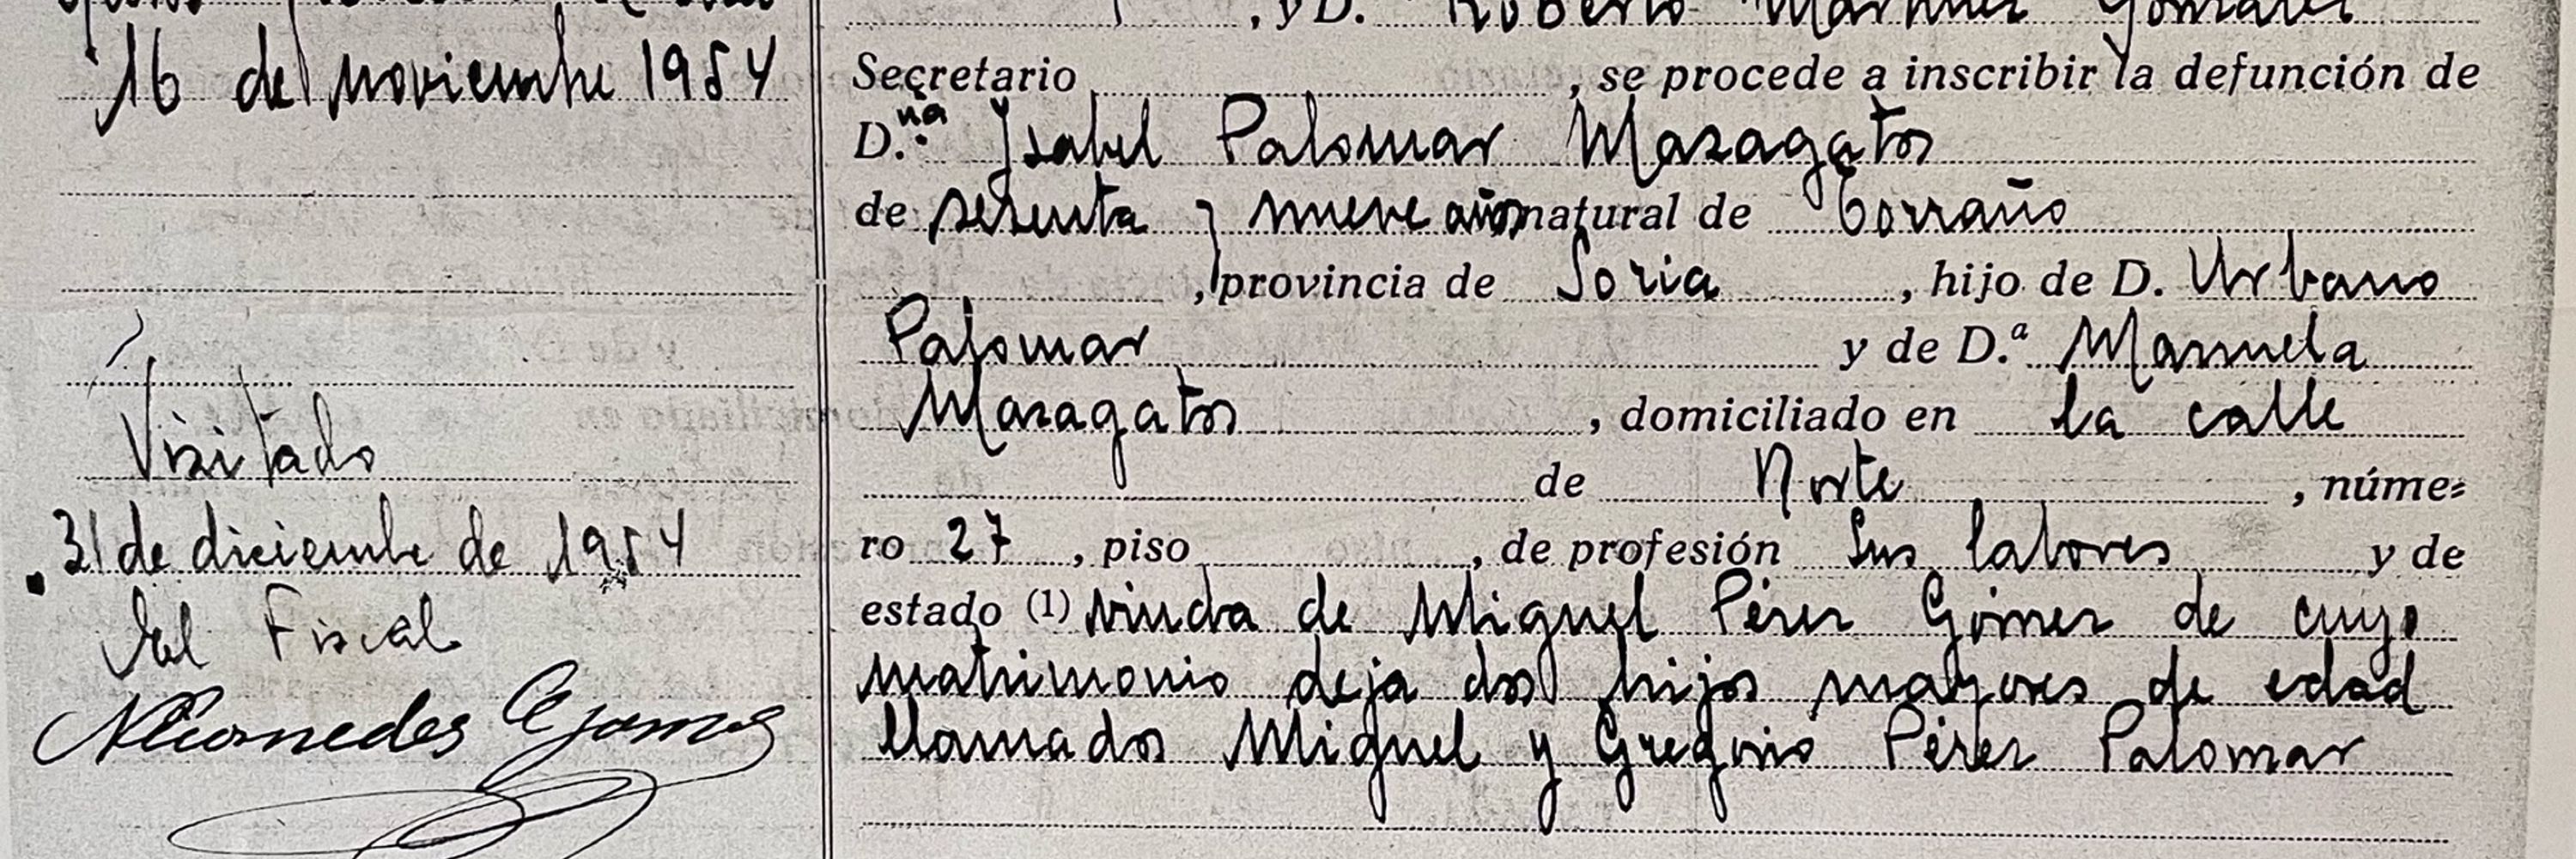 16 de noviembre 1954
Visitado
31 de diciembre de 1954
El Fiscal
, y D. Roberto Martinez Gonzalez
Secretario , se procede a inscribir la defunción de
D.ña Ysabel Palomar Mazagatos
de setenta y nueve años natural de Torraño
, provincia de Soria , hijo de D. Urbano
Palomar y de D.ª Manuela
Mazagatos , domiciliado en la calle
de Norte , núme=
ro 27 , piso , de profesión Sus labores y de
estado (1) viuda de Miguel Pérez Gómez de cuyo
matrimonio deja dos hijos mayores de edad
llamados Miguel y Gregorio Pérez Palomar